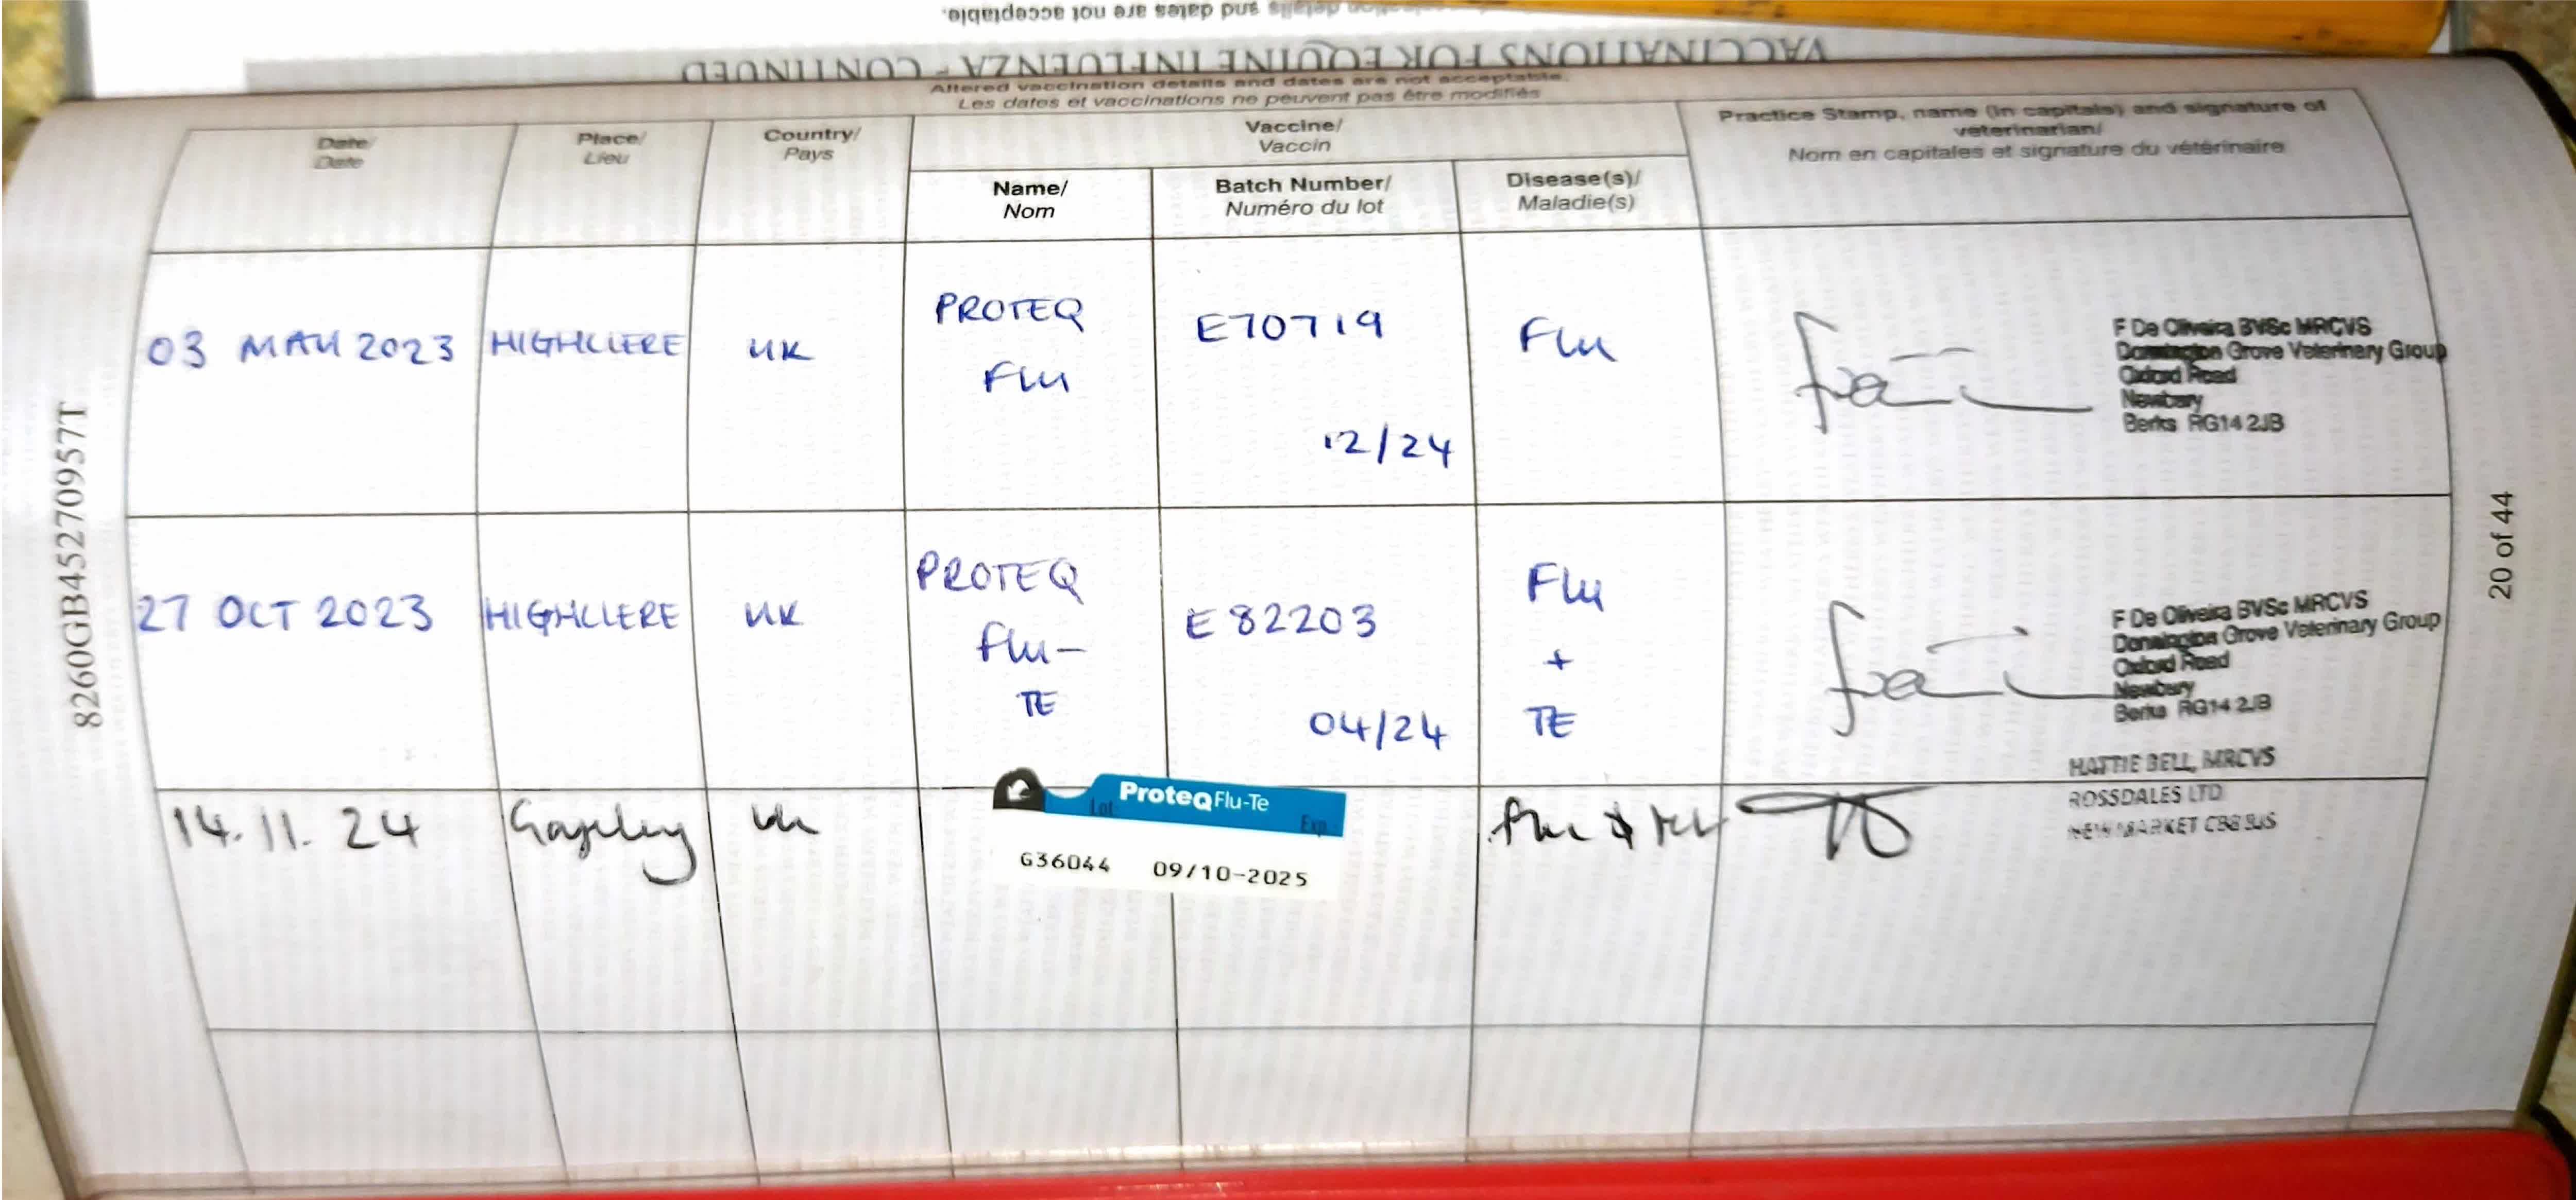 details and dates are not acceptable.
VACCINATIONS FOR EQUINE INFLUENZA - CONTINUED
Altered vaccination details and dates are not acceptable.
Les dates et vaccinations ne peuvent pas être modifiés
Date/
Date
Place/
Lieu
Country/
Pays
Vaccine/
Vaccin
Name/
Nom
Batch Number/
Numéro du lot
Disease(s)/
Maladie(s)
Practice Stamp, name (in capitals) and signature of
veterinarian/
Nom en capitales et signature du vétérinaire
03 MAY 2023
HIGHCLERE
UK
PROTEQ
FLU
E70719
12/24
Flu
F De Oliveira BVSc MRCVS
Donnington Grove Veterinary Group
Oxford Road
Newbury
Berks RG14 2JB
27 OCT 2023
HIGHCLERE
UK
PROTEQ
Flu-
TE
E82203
04/24
Flu
+
TE
F De Oliveira BVSc MRCVS
Donnington Grove Veterinary Group
Oxford Road
Newbury
Berks RG14 2JB
14.11.24
Gazeley
UK
ProteqFlu-Te
Lot
Exp
G36044 09/10-2025
flu &
HATTIE BELL, MRCVS
ROSSDALES LTD
NEWMARKET CB8 9JS
8260GB45270957T
20 of 44